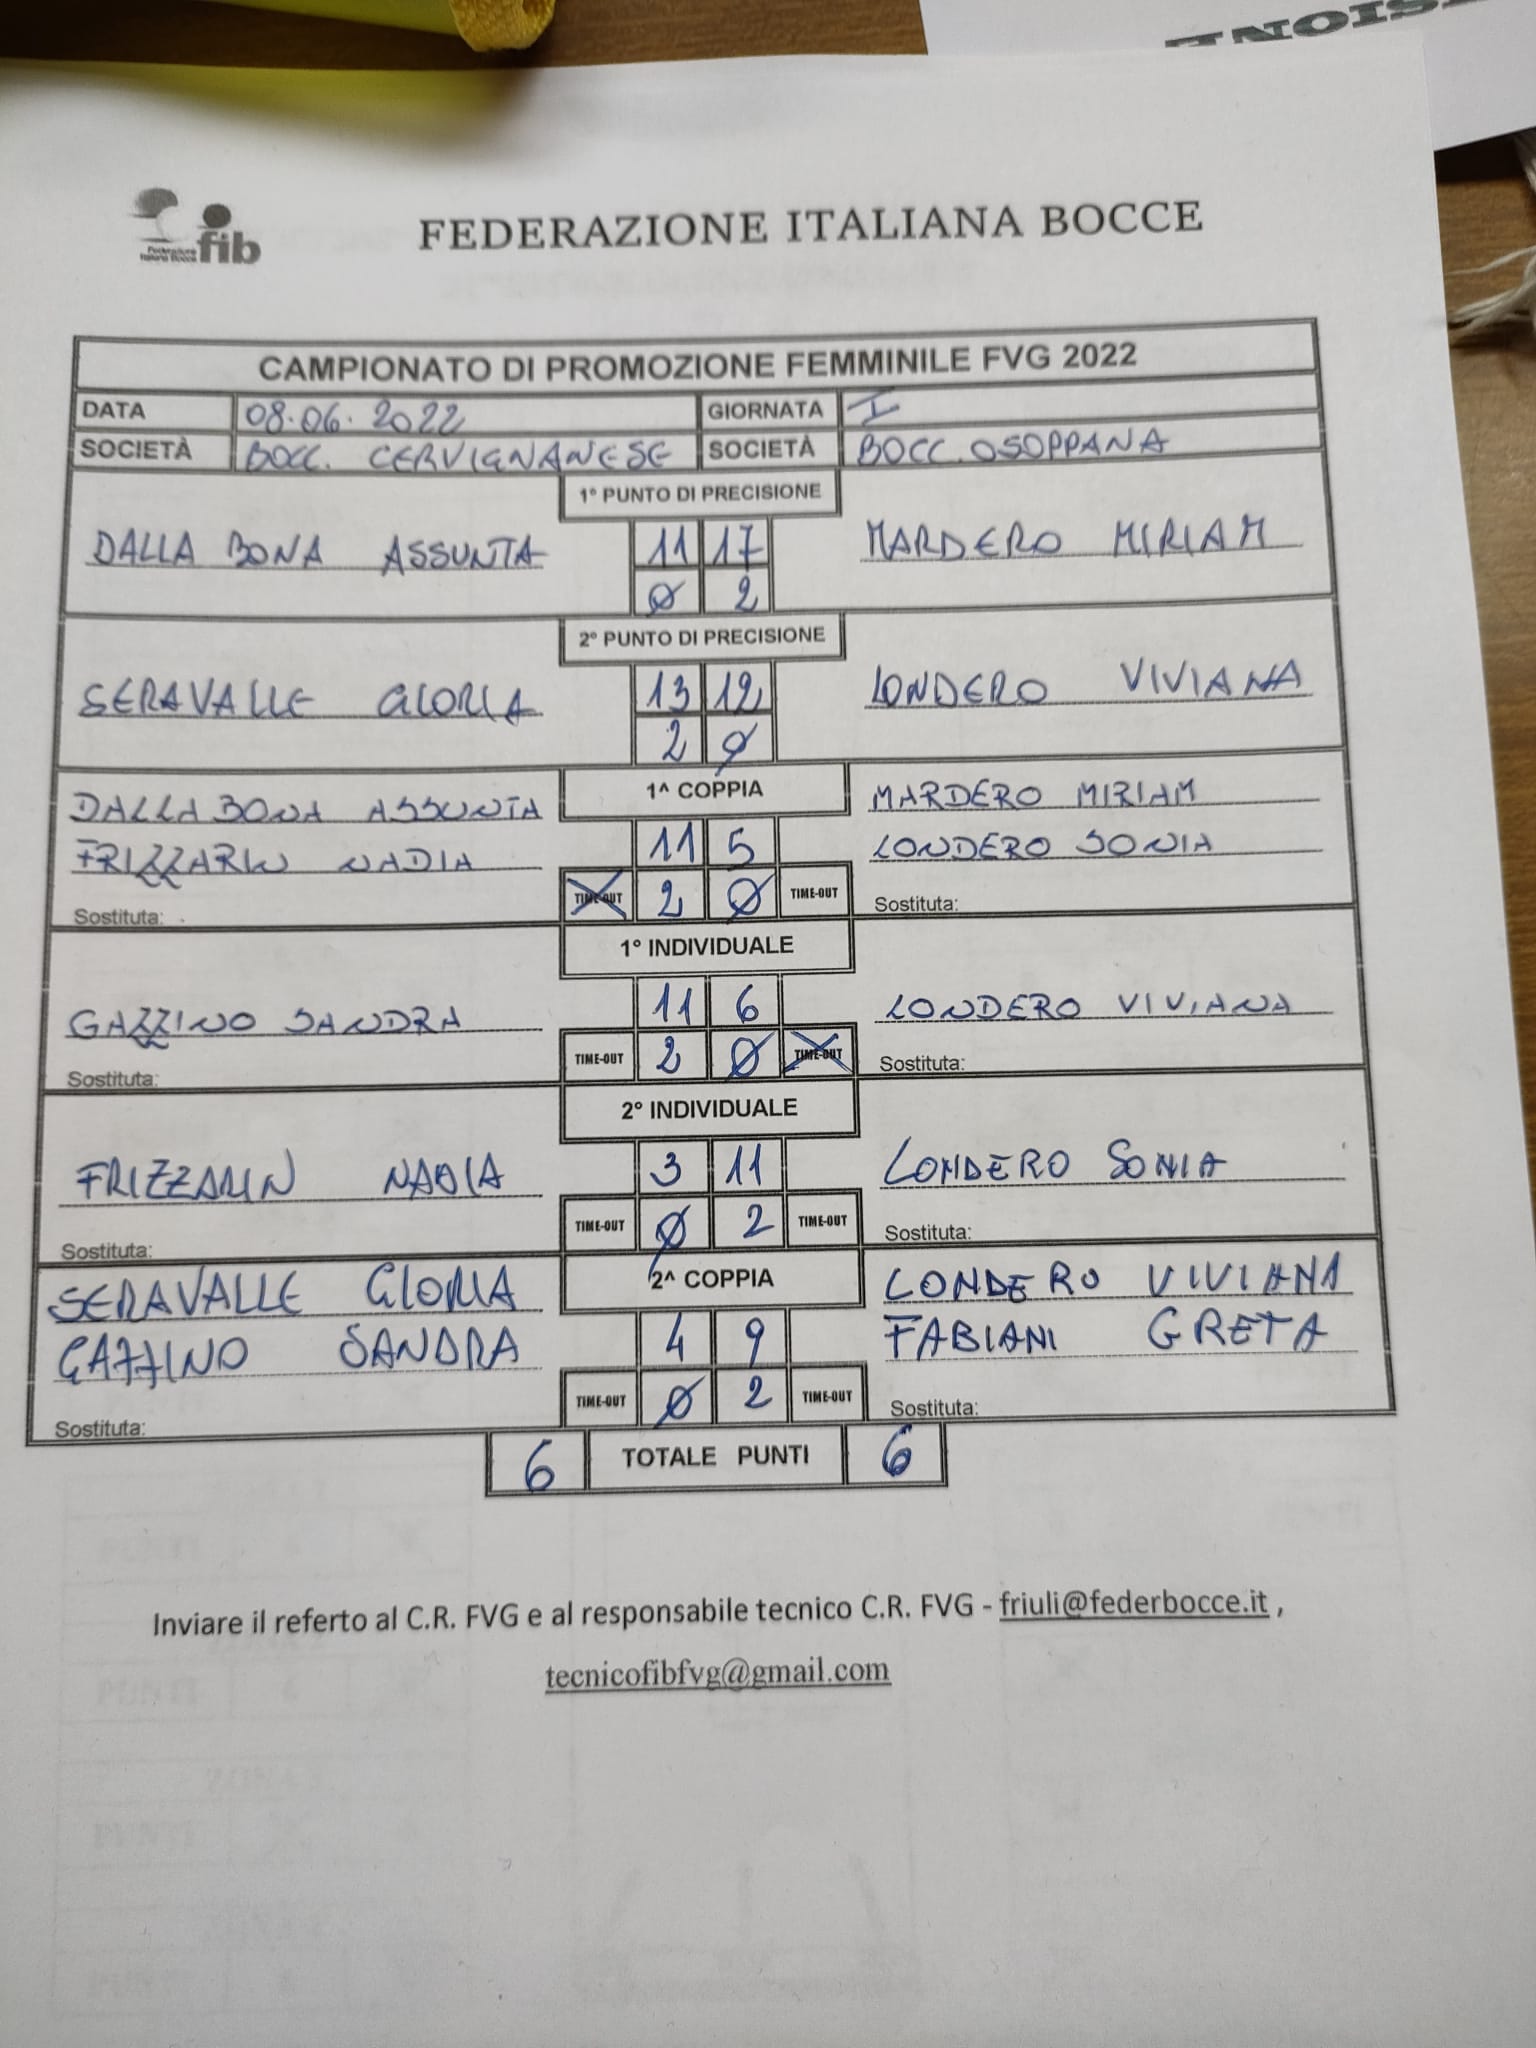 SIONE
Federazione
Italiana Bocce fib
FEDERAZIONE ITALIANA BOCCE
CAMPIONATO DI PROMOZIONE FEMMINILE FVG 2022
DATA 08.06.2022 GIORNATA I
SOCIETÀ BOCC. CERVIGNANESE SOCIETÀ BOCC. OSOPPANA
1° PUNTO DI PRECISIONE
DALLA BONA ASSUNTA 11 17 MARDERO MIRIAM
0 2
2° PUNTO DI PRECISIONE
SERAVALLE GLORIA 13 12 LONDERO VIVIANA
2 0
DALLA BONA ASSUNTA 1^ COPPIA MARDERO MIRIAM
FRIZZARIN NADIA 11 5 LONDERO SONIA
Sostituta: TIME-OUT 2 0 TIME-OUT Sostituta:
1° INDIVIDUALE
GAZZINO SANDRA 11 6 LONDERO VIVIANA
Sostituta: TIME-OUT 2 0 TIME-OUT Sostituta:
2° INDIVIDUALE
FRIZZARIN NADIA 3 11 LONDERO SONIA
Sostituta: TIME-OUT 0 2 TIME-OUT Sostituta:
SERAVALLE GLORIA 2^ COPPIA LONDERO VIVIANA
GAZZINO SANDRA 4 9 FABIANI GRETA
Sostituta: TIME-OUT 0 2 TIME-OUT Sostituta:
6 TOTALE PUNTI 6
Inviare il referto al C.R. FVG e al responsabile tecnico C.R. FVG - friuli@federbocce.it ,
tecnicofibfvg@gmail.com